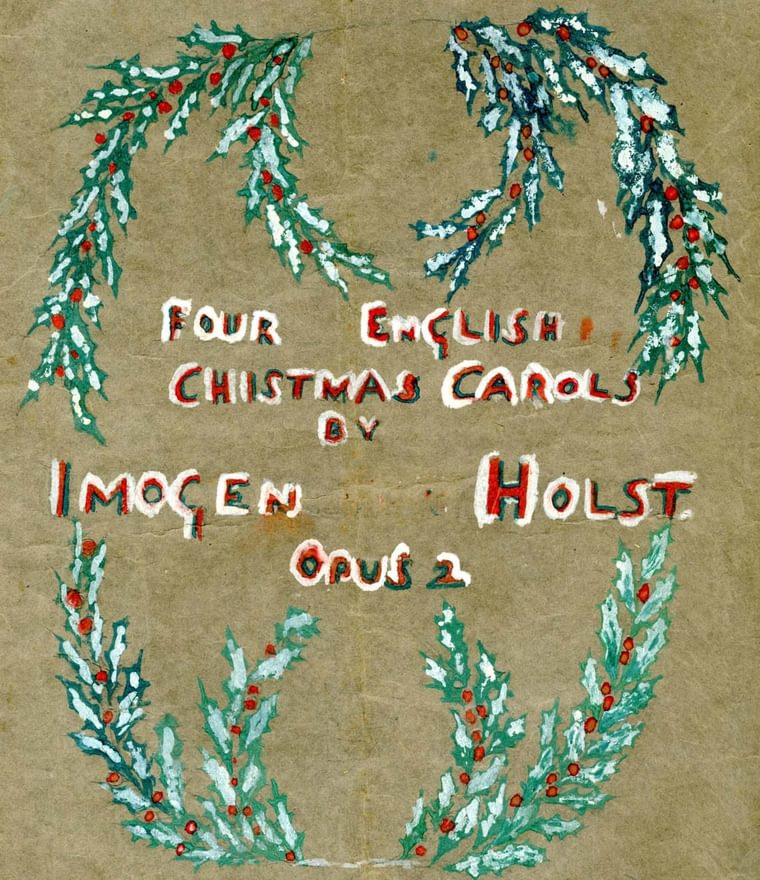 FOUR ENGLISH
CHISTMAS CAROLS
BY
IMOGEN HOLST.
OPUS 2